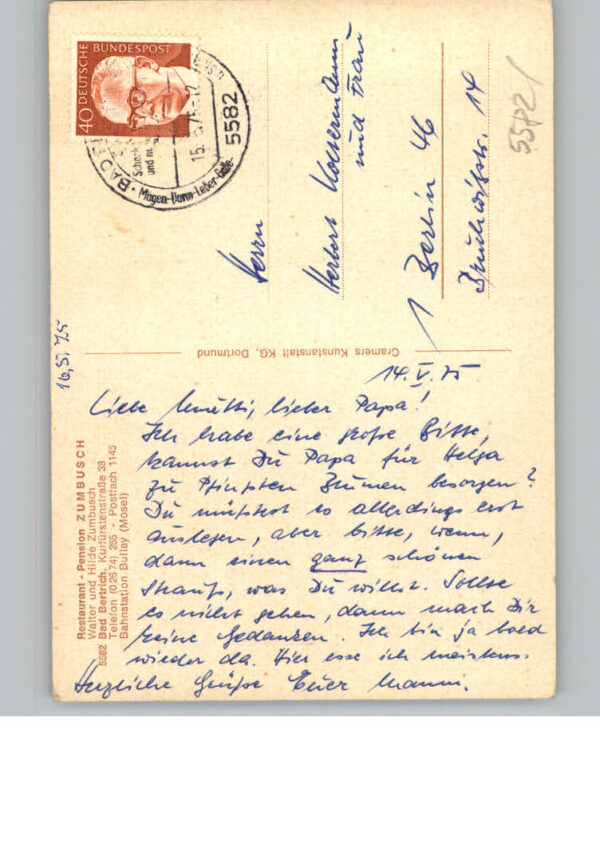 40 DEUTSCHE BUNDESPOST
5582
BAD
15.
75-12
Magen-Darm-Leber-Galle
Herrn
Herbert
und Frau
1 Berlin 46
14
5582
Cramers Kunstanstalt KG, Dortmund
16.5.75
Restaurant - Pension ZUMBUSCH
Walter und Hilde Zumbusch
5582 Bad Bertrich, Kurfürstenstraße 38
Telefon (0 26 74) 265 - Postfach 1145
Bahnstation Bullay (Mosel)
14. V. 75
Liebe Mutti, lieber Papa!
Ich habe eine große Bitte,
kannst Du Papa für Helga
zu Pfingsten Blumen besorgen?
Du müßtest es allerdings erst
auslegen, aber bitte, wenn,
dann einen ganz schönen
Strauß, was Du willst. Sollte
es nicht gehen, dann mach Dir
keine Gedanken. Ich bin ja bald
wieder da. Hier esse ich meistens.
Herzliche Grüße Euer Manni.